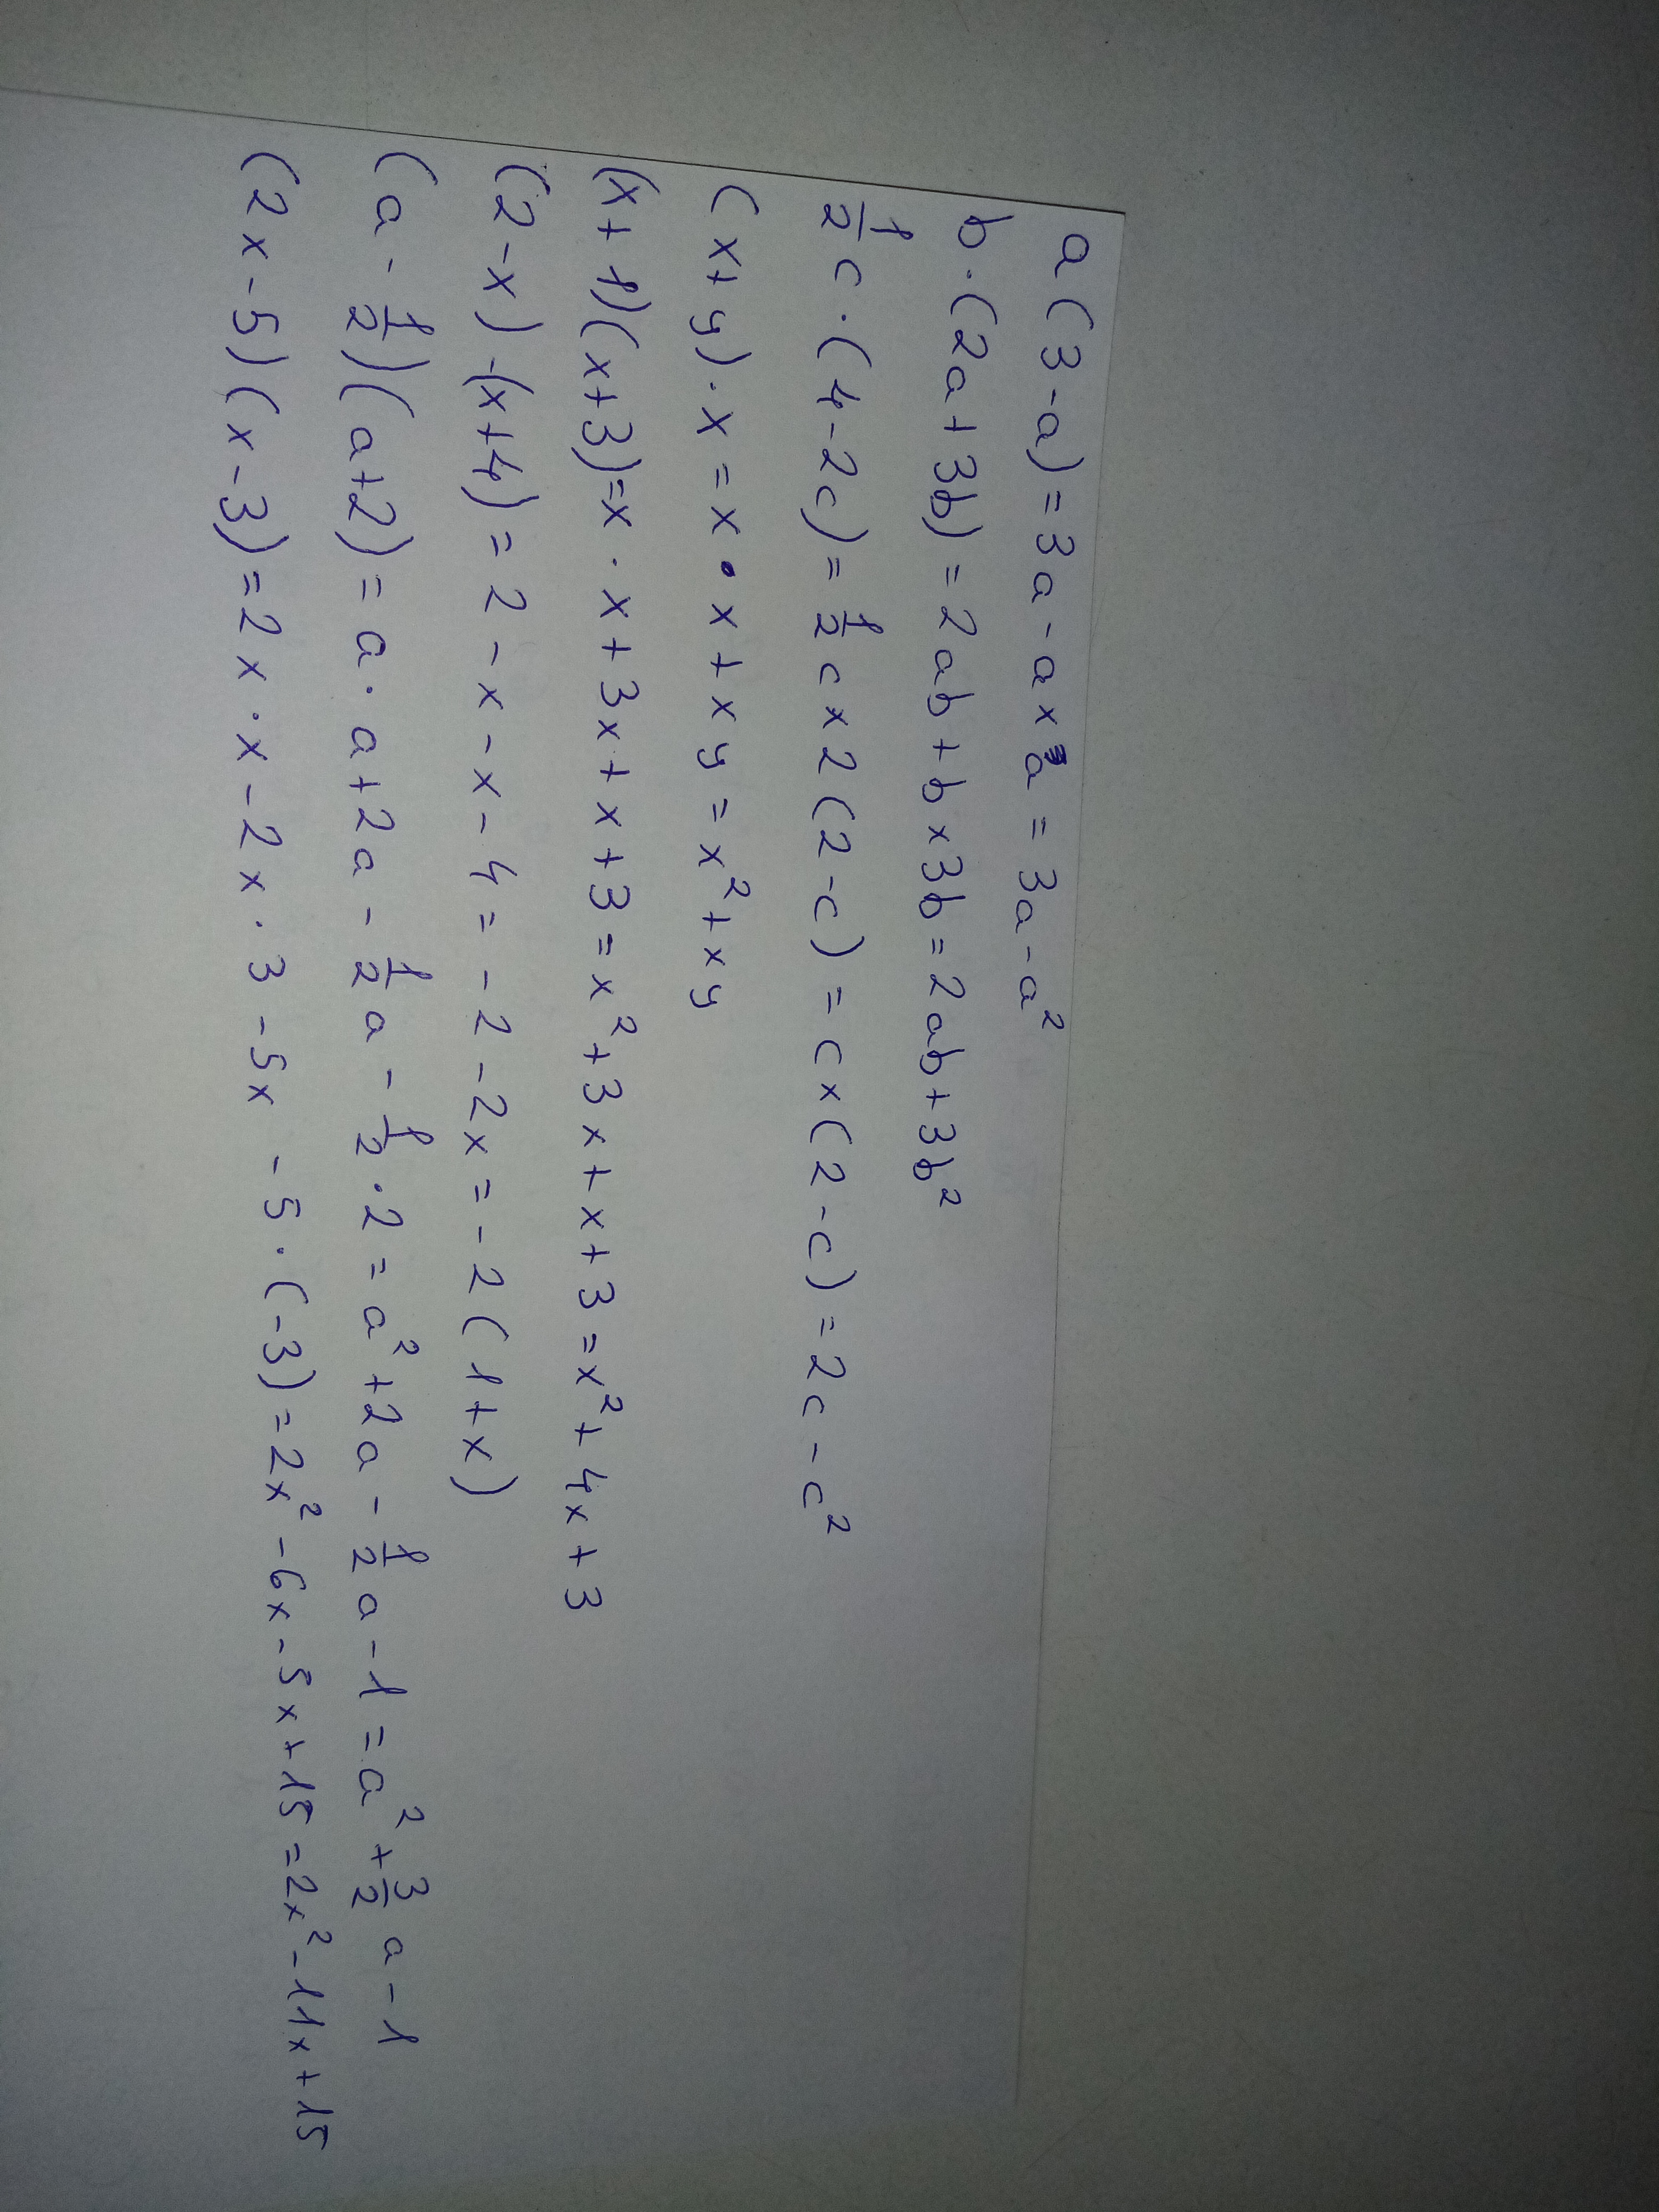 a(3-a)=3a-a×a=3a-a²
b·(2a+3b)=2ab+b×3b=2ab+3b²
½c·(4-2c)=½c×2(2-c)=c×(2-c)=2c-c²
(x+y)·x=x·x+xy=x²+xy
(x+1)(x+3)=x·x+3x+x+3=x²+3x+x+3=x²+4x+3
(2-x)-(x+4)=2-x-x-4=-2-2x=-2(1+x)
(a-½)(a+2)=a·a+2a-½a-½·2=a²+2a-½a-1=a²+3/2a-1
(2x-5)(x-3)=2x·x-2x·3-5x-5·(-3)=2x²-6x-5x+15=2x²-11x+15